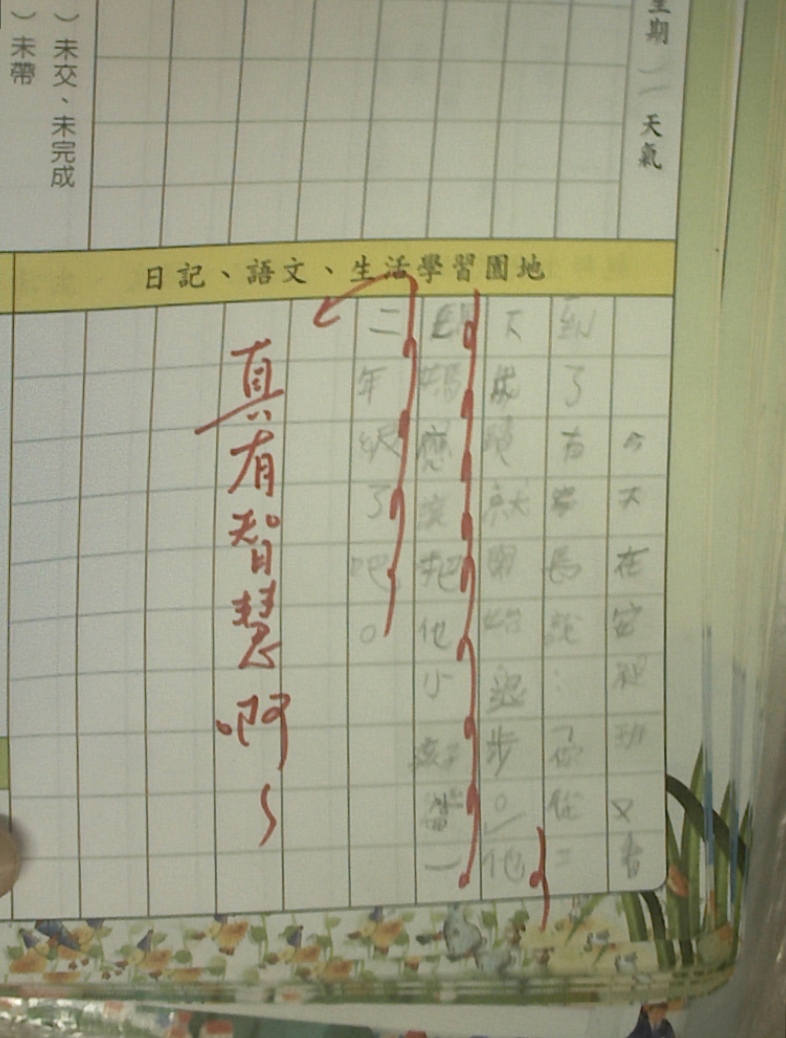 星期（一 天氣
）未交、未完成
）未帶
日記、語文、生活學習園地
今天在安親班又看
到了有家長說：「你從二
下成績就開始退步。」他
媽媽應該把他小孩子當一
二年級了吧。
真有智慧啊~